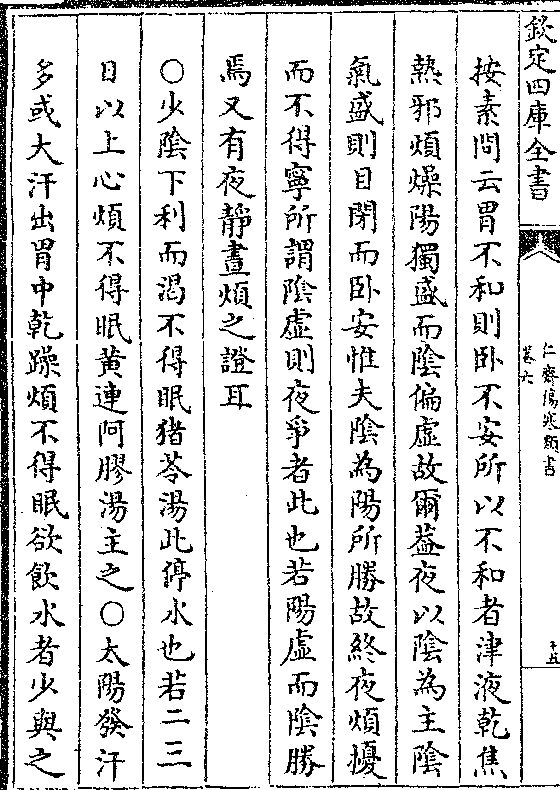 欽定四庫全書
仁齋傷寒類書
卷六
十五
按素問云胃不和則卧不安所以不和者津液乾焦
熱邪煩燥陽獨盛而陰偏虛故爾葢夜以陰為主陰
氣盛則目閉而卧安惟夫陰為陽所勝故終夜煩擾
而不得寧所謂陰虛則夜爭者此也若陽虛而陰勝
焉又有夜靜晝煩之證耳
○少陰下利而渴不得眠猪苓湯此停水也若二三
日以上心煩不得眠黄連阿膠湯主之○太陽發汗
多或大汗出胃中乾躁煩不得眠欲飲水者少與之